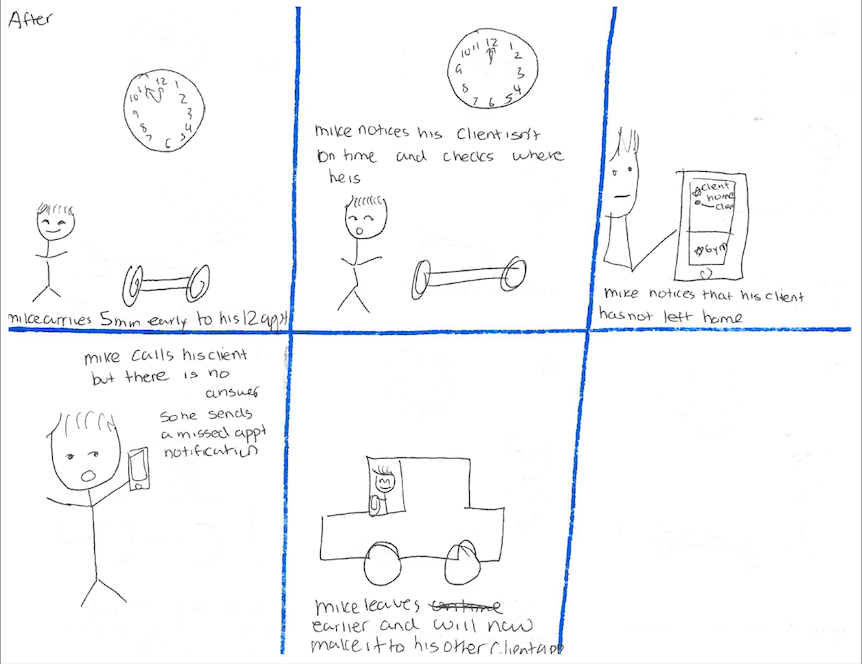 After
12 1 2 3 4 5 6 7 8 9 10 11
mike arrives 5min early to his 12 appt
12 1 2 3 4 5 6 7 8 9 10 11
mike notices his client isn't
on time and checks where
he is
client
home
Gym
mike notices that his client
has not left home
mike calls his client
but there is no
answer
so he sends
a missed appt
notification
mike leaves
earlier and will now
make it to his other client app